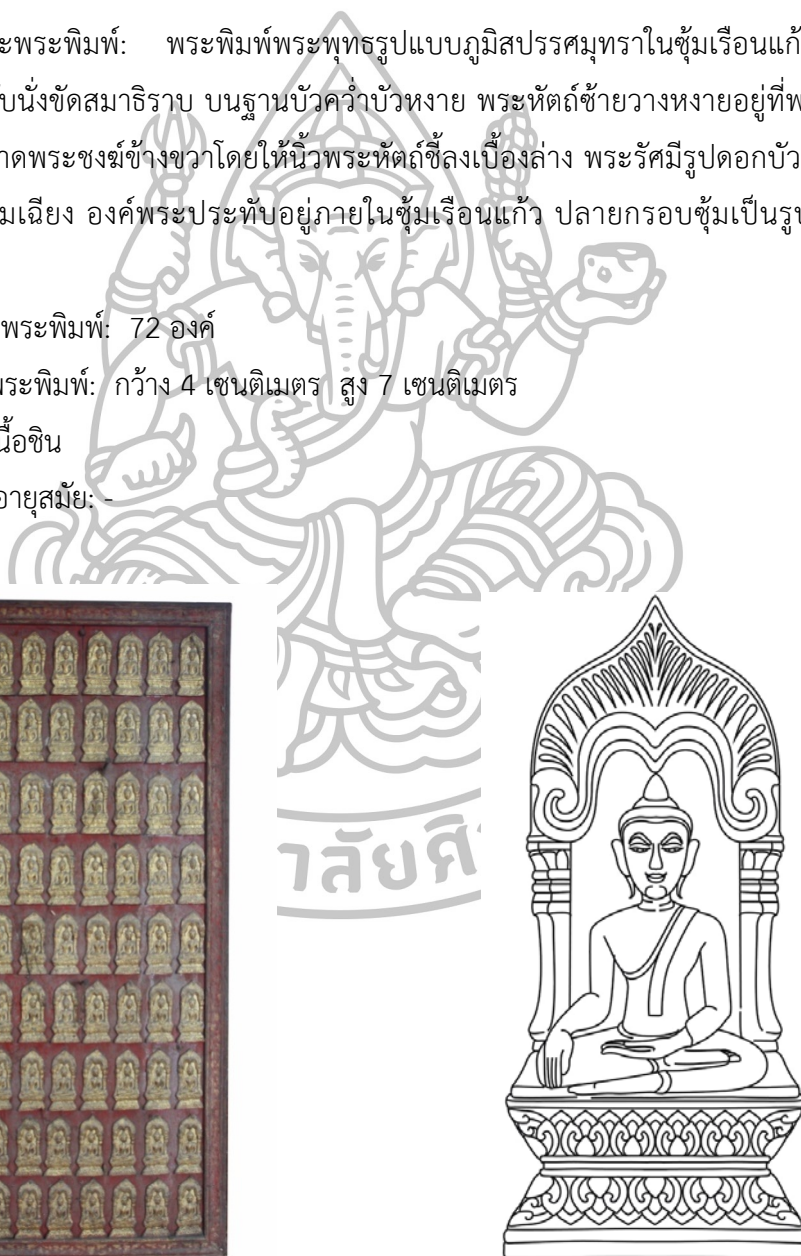 ะพระพิมพ์: พระพิมพ์พระพุทธรูปแบบภูมิสปรรศมุทราในซุ้มเรือนแก้
ับนั่งขัดสมาธิราบ บนฐานบัวคว่ำบัวหงาย พระหัตถ์ซ้ายวางหงายอยู่ที่พ
าดพระชงฆ์ข้างขวาโดยให้นิ้วพระหัตถ์ชี้ลงเบื้องล่าง พระรัศมีรูปดอกบัว
มเฉียง องค์พระประทับอยู่ภายในซุ้มเรือนแก้ว ปลายกรอบซุ้มเป็นรูป
พระพิมพ์: 72 องค์
พระพิมพ์: กว้าง 4 เซนติเมตร สูง 7 เซนติเมตร
นื้อชิน
อายุสมัย: -
าลัยศิ